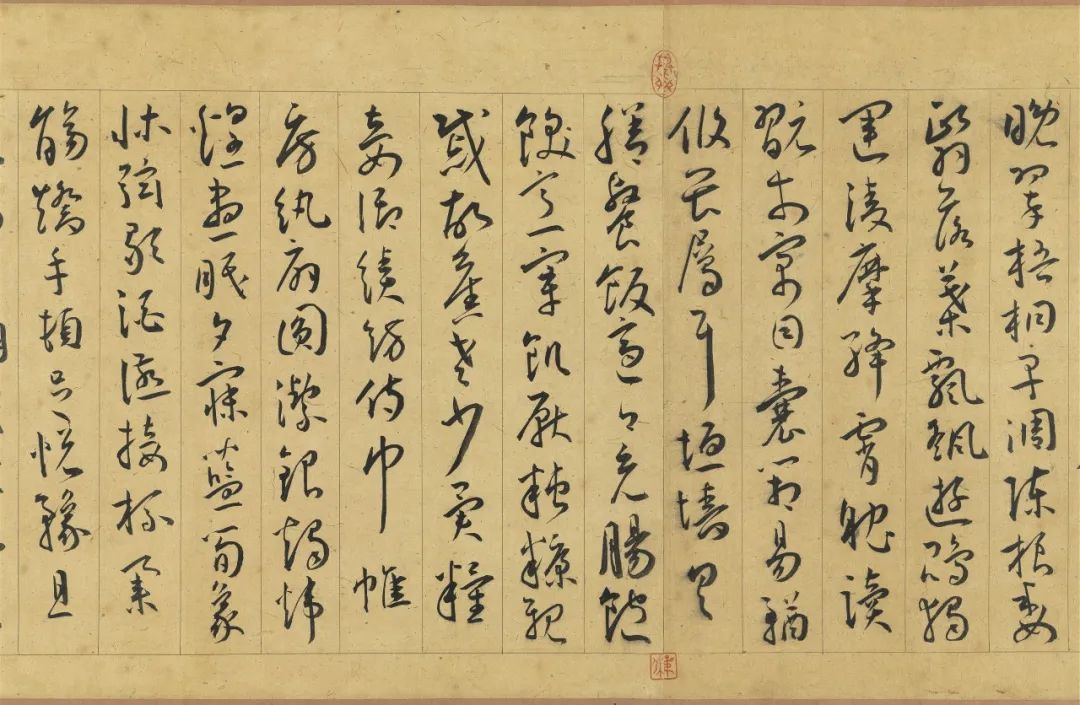 晚翠梧桐早凋陳根委
翳落葉飄颻遊鵾獨
運凌摩絳霄耽讀
翫市寓目囊箱易輶
攸畏屬耳垣墻具
膳餐飯適口充腸飽
飫烹宰飢厭糟糠親
戚故舊老少異糧
妾御績紡侍巾帷
房紈扇圓潔銀燭煒
煌晝眠夕寐藍筍象
床絃歌酒讌接杯舉
觴矯手頓足悅豫且